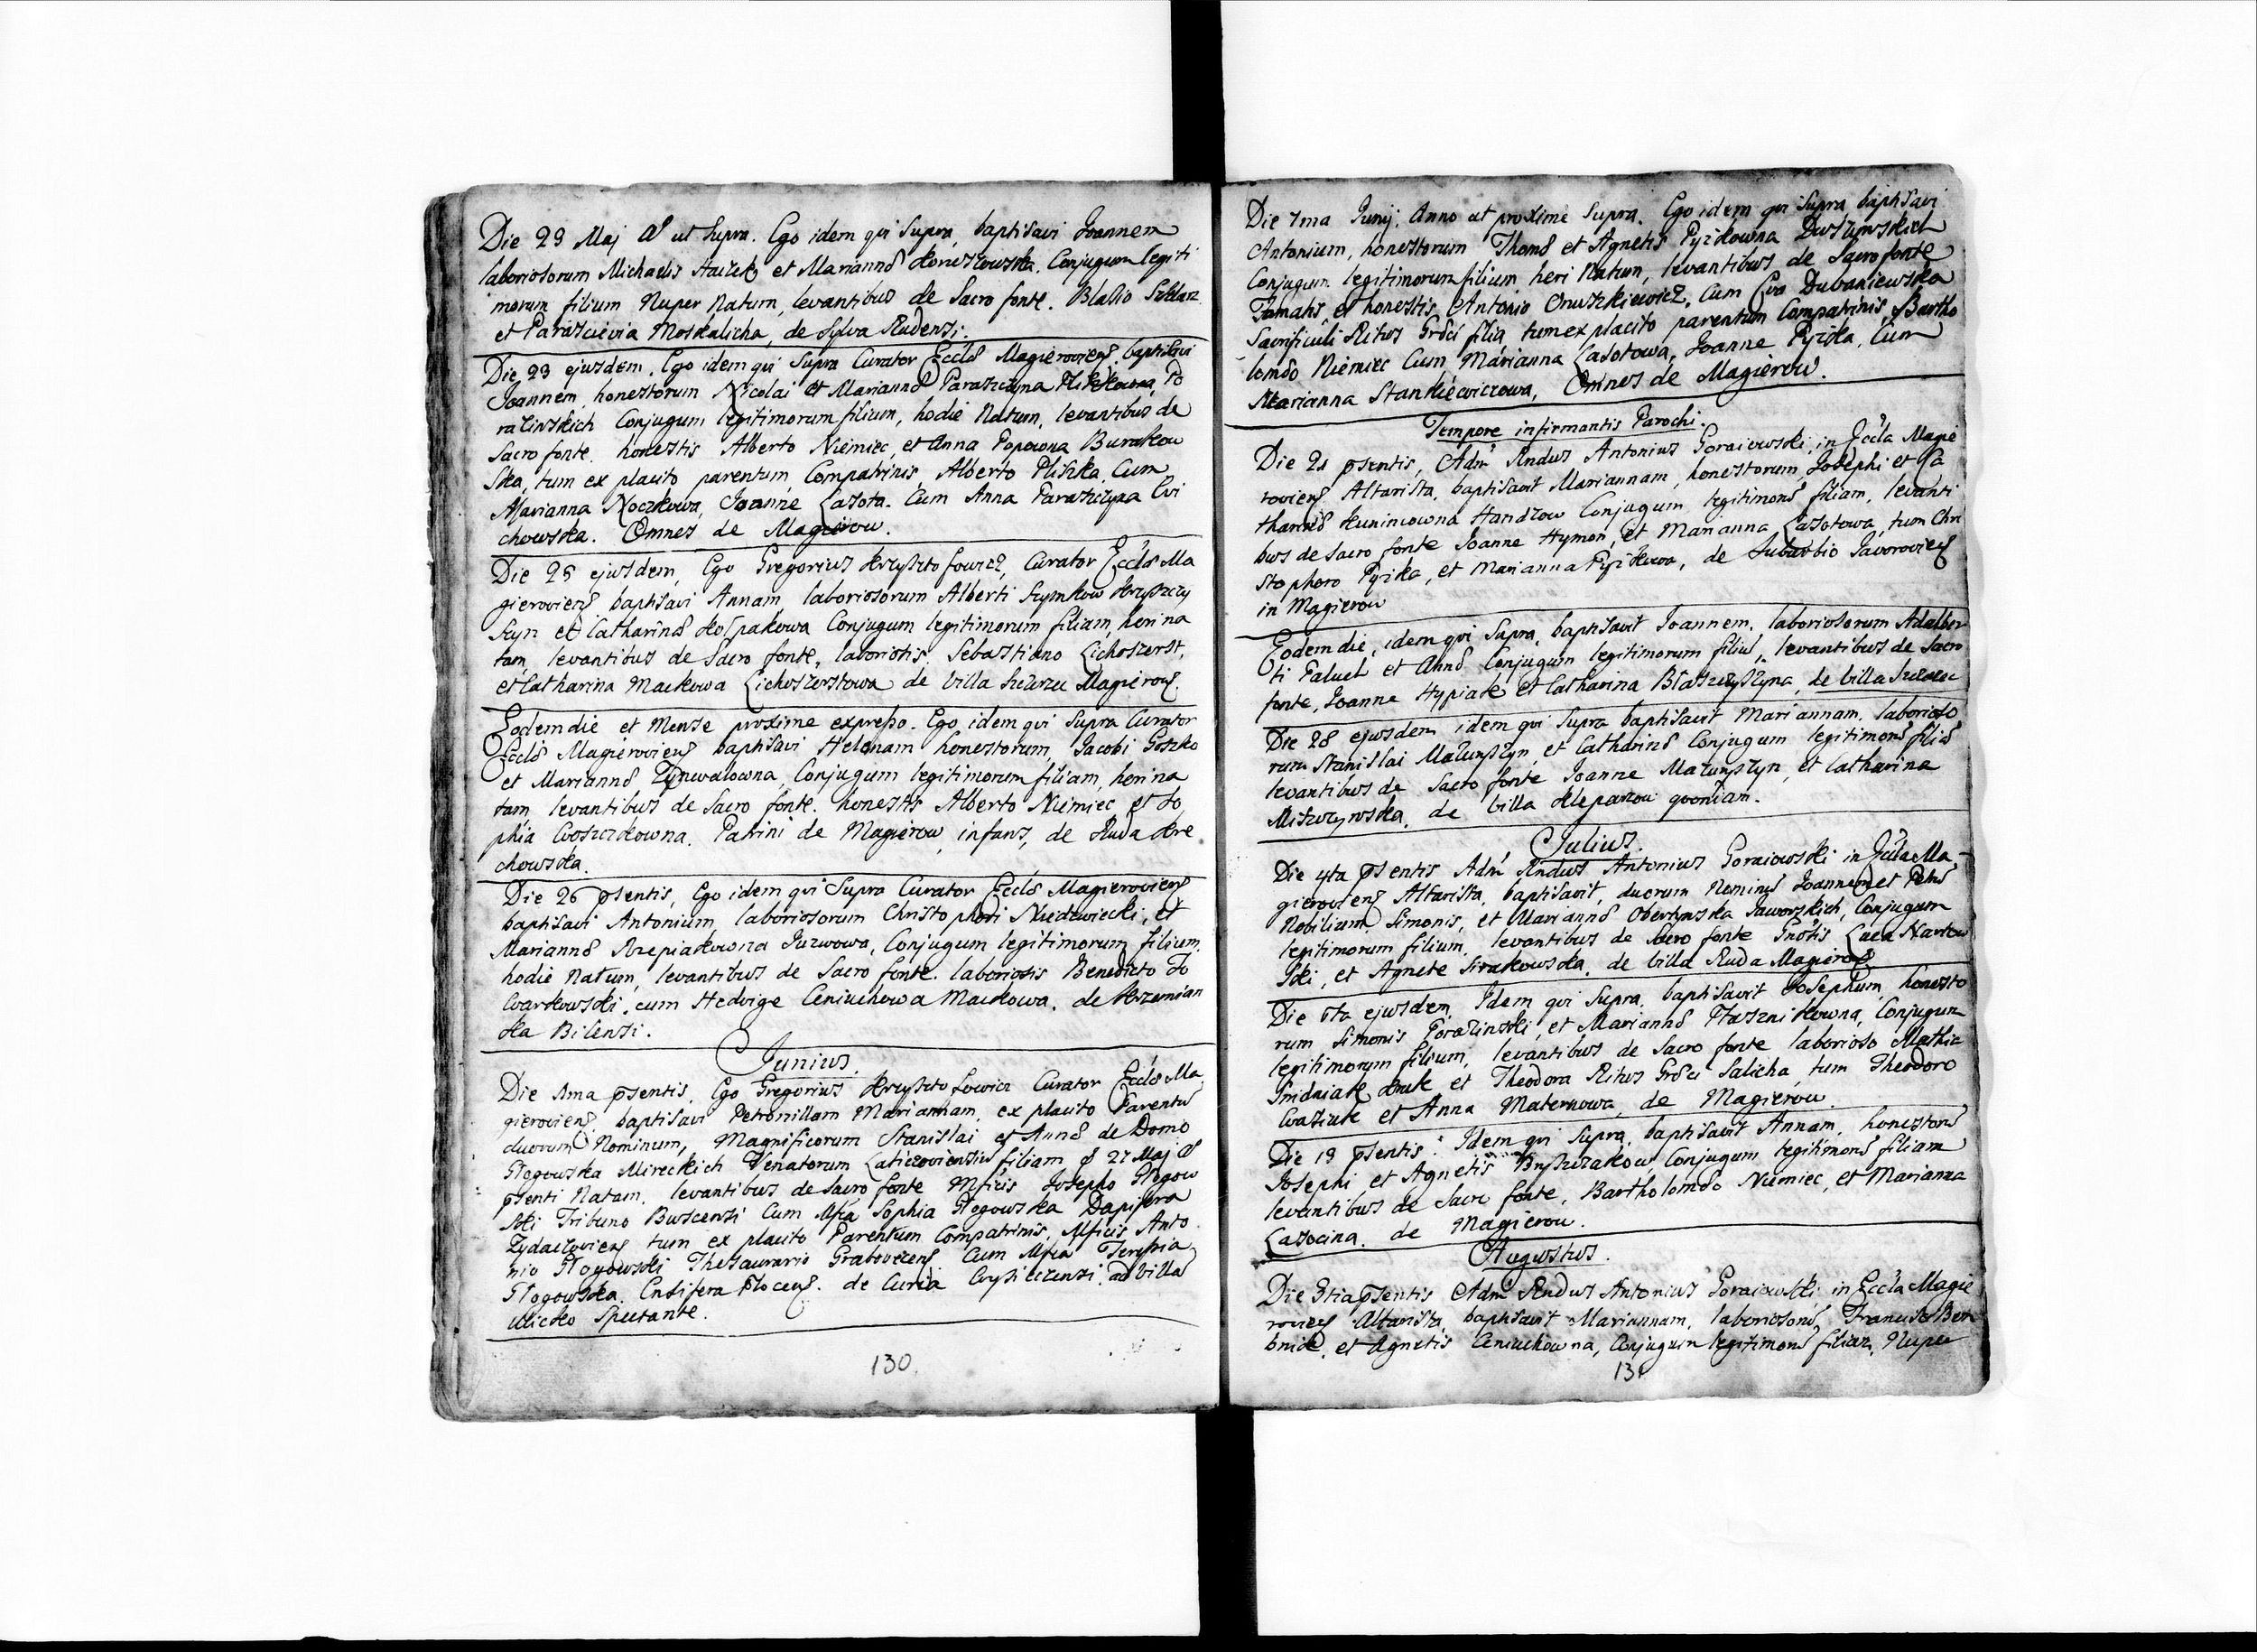 Die 23 Maj A ut Supra. Ego idem qui Supra, baptisavi Joannem
laboriosorum Michaelis et Mariannæ Conjugum legiti
morum filium Nuper Natum, levantibus de Sacro fonte. Blasio
et Parascievia Moskalicha, de Sylva Rudensi.
Die 23 ejusdem. Ego idem qui Supra Curator Ecclæ Magierovieñ. baptisavi
Joannem, honestorum Nicolai et Mariannæ Paraszczyna Pliszkowna, Po
razinskich Conjugum legitimorum filium, hodie Natum, levantibus de
Sacro fonte. honestis Alberto Niemiec, et Anna Popowna Burakow
ska, tum ex placito parentum Compatrinis, Alberto Pliszka, Cum
Marianna Noczkowa, Joanne Lasota. Cum Anna Paraszczyna Cvi
chowska. Omnes de Magierow.
Die 25 ejusdem, Ego Gregorius Krzysztofowicz, Curator Ecclæ Ma
gierovieñ baptisavi Annam, laboriosorum Alberti Szymkow Kryszczy
szyn et Catharinæ Kolpakowa Conjugum legitimorum filiam, heri na
tam, levantibus de Sacro fonte, laboriosis. Sebastiano Lichoszerst,
et Catharina Mackowa Lichoszerstowa de villa Magierow.
Eodem die et Mense proxime expresso. Ego idem qui Supra Curator
Ecclæ Magierovieñ baptisavi Helenam honestorum, Jacobi Goszko
et Mariannæ Conjugum legitimorum filiam, heri na
tam, levantibus de Sacro fonte. honestis Alberto Niemiec et So
phia Patrini de Magierow, infans, de Ruda Kre
chowska.
Die 26 psentis, Ego idem qui Supra Curator Ecclæ Magierovieñ
baptisavi Antonium, laboriosorum Christophori Niedzwiecki, et
Mariannæ Rzepiakowna Conjugum legitimorum filium,
hodie Natum, levantibus de Sacro fonte. laboriosis Benedicto So
Cum Hedvige Ceniuchowa Mackowa. de Krzemian
ka Bilensi.
Junius.
Die 1ma psentis. Ego Gregorius Krzysztofowicz Curator Ecclæ Ma
gierovieñ. baptisavi Petronillam Mariannam, ex placito Parentũ
duorum Nominum, Magnificorum Stanislai et Annæ de Domo
Glogowska Mireckich Venatorum Laticzoviensiũ filiam 27 Maj A
psenti Natam. levantibus de Sacro fonte Mficis Josepho Glogow
ski Tribuno Buscensi Cum Mfca Sophia Glogowska Dapifera
Zydaczovieñ tum ex placito Parentum Compatrinis, Mficis Anto
nio Glogowski Thesaurario Graboveceñ. Cum Mfca Teressia
Glogowska. Ensifera Ploceñ. de Curia ad villã
Ulicko Spectante.
130.
Die 7ma Junij. Anno ut proxime Supra. Ego idem qui Supra baptisavi
Antonium, honestorum Thomæ et Agnetis Pyzikowna
Conjugum legitimorum filium heri Natum, levantibus de Sacro fonte
Famatis, et honestis, Antonio Onuszkiewicz, Cum Eva Dubaniewska
Sacrificuli Ritus Græci filia, tum ex placito parentum Compatrinis, Bartho
lomæo Niemiec Cum Marianna Lasotowa, Joanne Pyzka, Cum
Marianna Stankiewiczowa, Omnes de Magierow.
Tempore infirmantis Parochi.
Die 21 psentis, Adm̃ Rndus Antonius Goraiowski, in Eccla Magie
rovieñ Altarista, baptisavit Mariannam, honestorum, Josephi et Ca
tharinæ Kunimowna Handzow Conjugum legitimorũ filiam, levanti
bus de Sacro fonte Joanne Hymon, et Marianna Lasotowa, tum Chri
stophoro Pyzka, et Marianna Pyzikowa, de Suburbio Javorovieñ
in Magierow
Eodem die, idem qui Supra, baptisavit Joannem, laboriosorum Adalber
ti Paluch et Annæ Conjugum legitimorum filiũ, levantibus de Sacro
fonte, Joanne Hypiak et Catharina Błaszczyszyna, de villa
Die 28 ejusdem idem qui Supra baptisavit Mariannam. laborioso
rum Stanislai Mazuryszyn, et Catharinæ Conjugum legitimorũ filiã
levantibus de Sacro fonte Joanne Mazuryszyn, et Catharina
de villa Kleparow
Julius.
Die 4ta psentis Adm̃ Rndus Antonius Goraiowski in Eccla Ma
gierovieñ Altarista, baptisavit, duorum Nominũ Joannem et Petrũ
Nobilium Simonis, et Mariannæ Obertynska Jaworskich, Conjugum
legitimorum filium, levantibus de Sacro fonte Gnosis Luca
ski, et Agnete Sirakowska, de villa Ruda Magierow.
Die 6ta ejusdem, Idem qui Supra, baptisavit Josephum, honesto
rum Simonis Porazinski, et Mariannæ Ptasznikowna, Conjugum
legitimorum filium, levantibus de Sacro fonte laborioso Mathia
et Theodora Ritus Græci Salicha, tum Theodoro
Cvaziuk et Anna Maternowa, de Magierow.
Die 19 psentis. Idem qui Supra, baptisavit Annam, honestorũ
Josephi et Agnetis Conjugum legitimorũ filiam
levantibus de Sacro fonte, Bartholomæo Niemiec, et Marianna
Lasocina. de Magierow.
Augustus.
Die 3tia psentis Adm̃ Rndus Antonius Goraiowski in Eccla Magie
rovieñ Altarista, baptisavit Mariannam, laboriosorũ, Francisci
et Agnetis Ceniuchowna, Conjugum legitimorũ filiam, Nuper
131